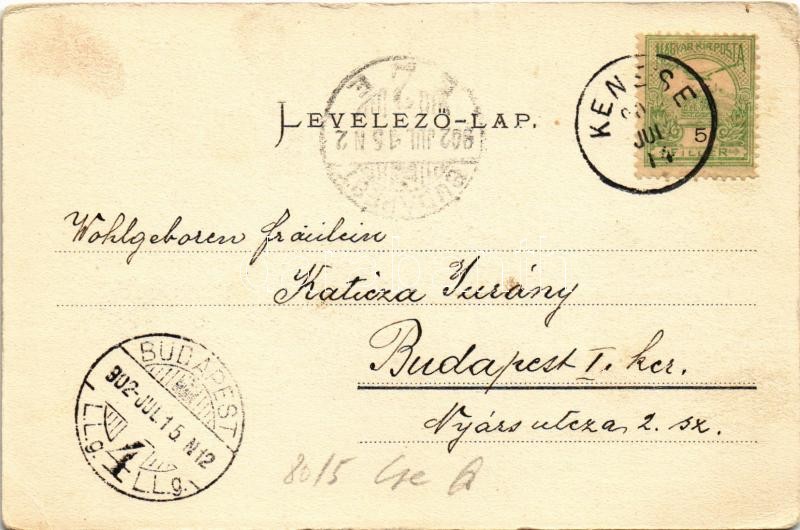 MAGYAR KIR. POSTA
5
FILLÉR
KENESE
JUL
14
LEVELEZŐ-LAP.
902 JUL 15 N 2
BUDAPEST
Wohlgeboren fräulein
Katicza Jurány
Budapest I. ker.
Nyárs utcza 2. sz.
BUDAPEST
902-JUL.15.N12
4
I.I.g.
I.I.g.
8015